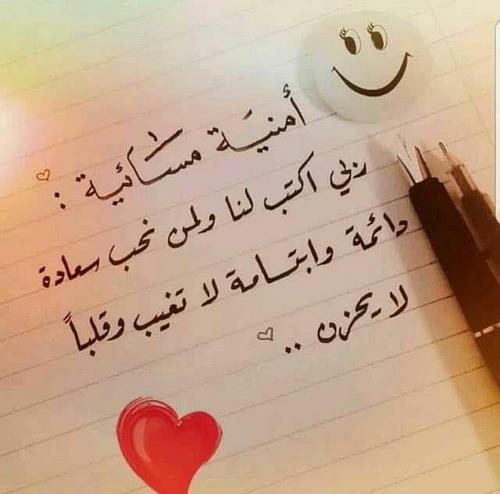 أمنية مسائية :
ربي اكتب لنا ولمن نحب سعادة
دائمة وابتسامة لا تغيب وقلباً
لا يحزن ..